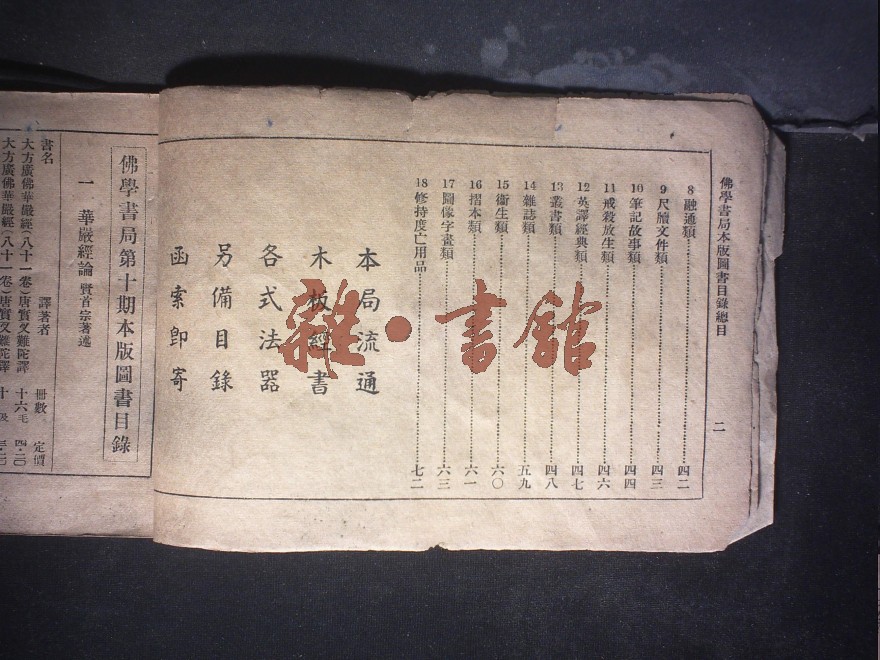 佛學書局本版圖書目錄總目
二
8 融通類……四二
9 尺牘文件類……四三
10 筆記故事類……四四
11 戒殺放生類……四六
12 英譯經典類……四七
13 叢書類……四八
14 雜誌類……五九
15 衞生類……六〇
16 摺本類……六一
17 圖像字畫類……六三
18 修持度亡用品……七二
本局流通
木板經書
各式法器
另備目錄
函索卽寄
雜·書館
佛學書局第十期本版圖書目錄
一 華嚴經論 賢首宗著述
書名 譯著者 冊數 定價
大方廣佛華嚴經(八十一卷)唐實叉難陀譯 十六 毛 四·二〇
大方廣佛華嚴經(八十一卷)唐實叉難陀譯 十